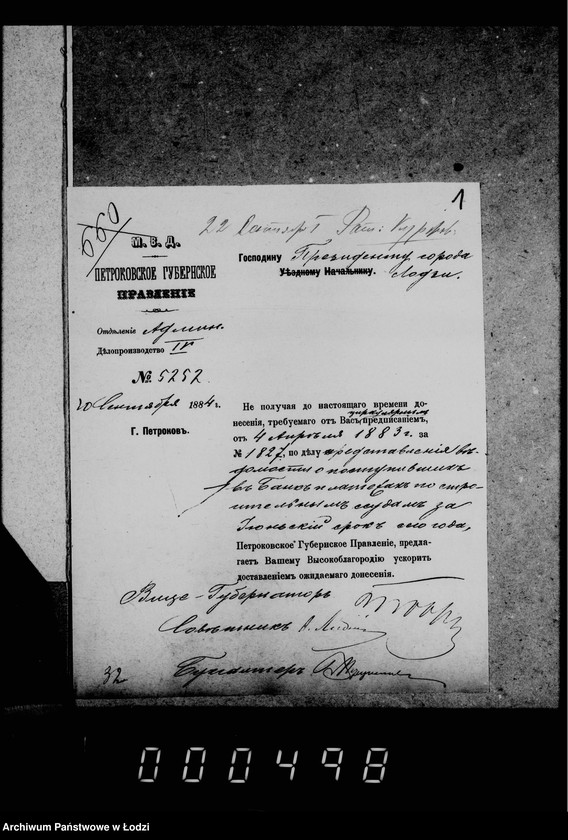 1
660
22 Сентяр
М. В. Д.
ПЕТРОКОВСКОЕ ГУБЕРНСКОЕ
ПРАВЛЕНІЕ
Отдѣленіе Админ.
Дѣлопроизводство IV
№ 5252
20 Сентября 1884 г.
Г. Петроковъ.
Господину Президенту города
Уѣздному Начальнику. Лодзи.
Не получая до настоящаго времени до-
несенія, требуемаго отъ Васъ циркулярнымъ предписаніемъ,
отъ 4 Апрѣля 1883 г. за
№ 1827, по дѣлу представленія вѣ-
домости о поступившихъ
въ Банкъ платежахъ по стро-
ительнымъ ссудамъ за
Іюньскій срокъ сего года,
Петроковское Губернское Правленіе, предла-
гаетъ Вашему Высокоблагородію ускорить
доставленіемъ ожидаемаго донесенія.
Вице-Губернаторъ
Совѣтникъ
Бухгалтеръ
32
000498
Archiwum Państwowe w Łodzi